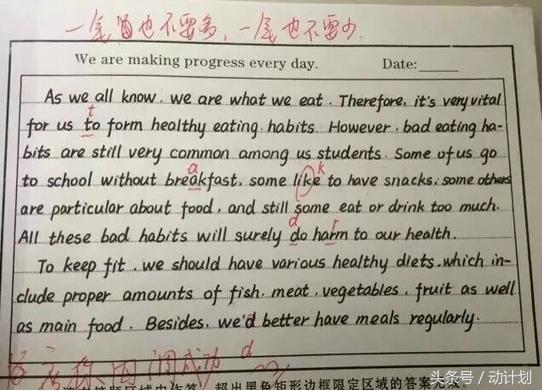 一尾
也不要多，一尾也不要少
We are making progress every day. Date:
As we all know, we are what we eat. Therefore, it's very vital
t
for us to form healthy eating habits. However, bad eating ha-
bits are still very common among us students. Some of us go
a k
to school without breakfast, some like to have snacks, some others
are particular about food, and still some eat or drink too much.
d r
All these bad habits will surely do harm to our health.
To keep fit, we should have various healthy diets, which in-
clude proper amounts of fish, meat, vegetables, fruit as well
as main food. Besides, we'd better have meals regularly.
d
超出黑色矩形边框限定区域的答案无效
头条号 / 动计划